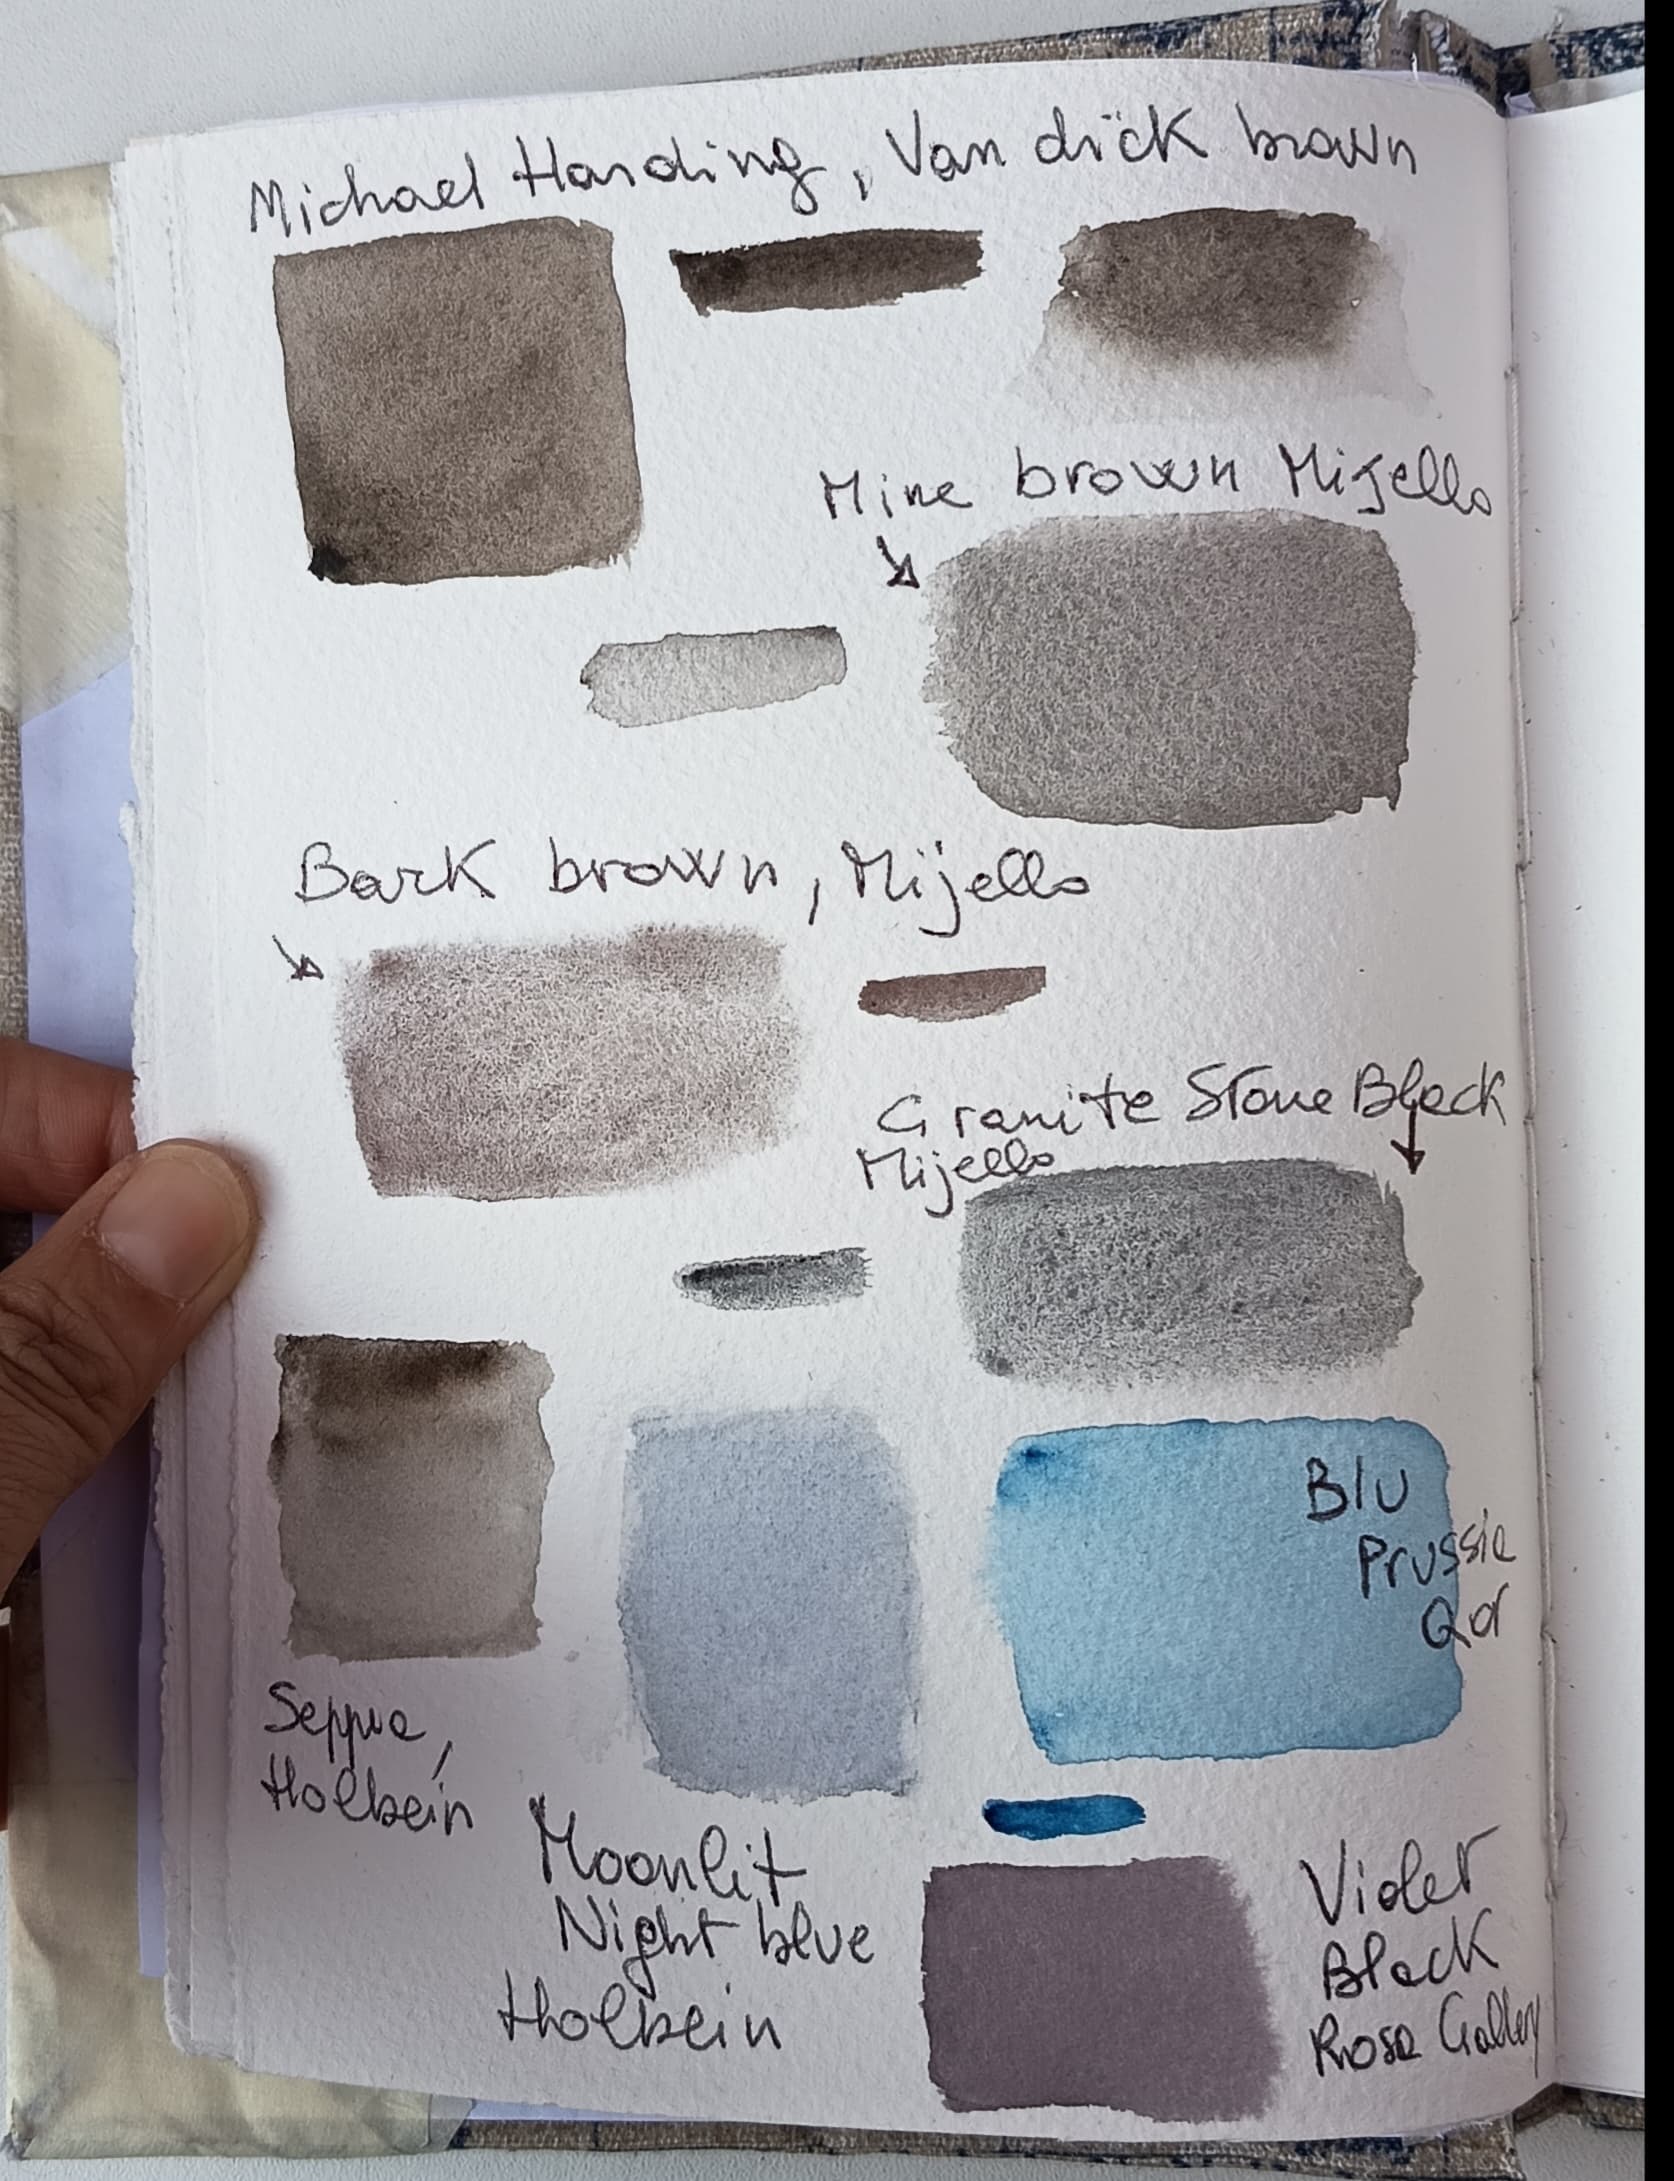 Michael Harding, Van dïck brown
Mine brown Mijello
Bark brown, Mïjello
Granite Stone Black
Mijello
Blu
Prussia
Qor
Seppia,
Holbein
Moonlit
Night blue
Holbein
Violet
Black
Rosa Gallery